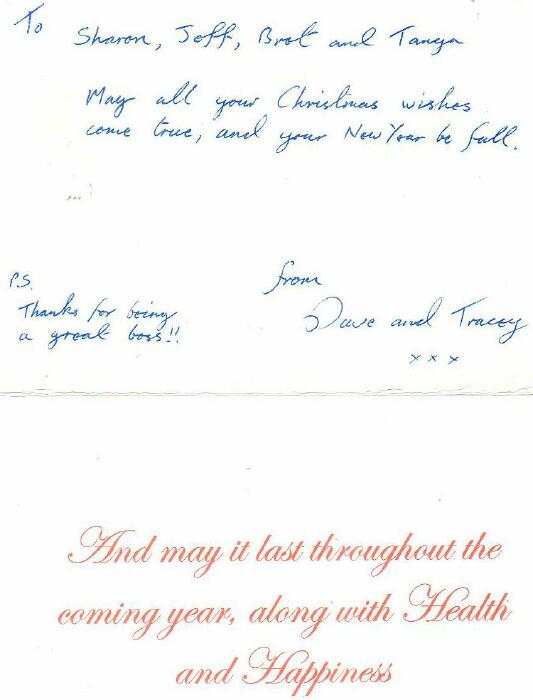 To
Sharon, Jeff, Brot and Tanya
May all your Christmas wishes
come true, and your New Year be full.
P.S.
Thanks for being
a great boss!!
from
Dave and Tracey
x x x
And may it last throughout the
coming year, along with Health
and Happiness